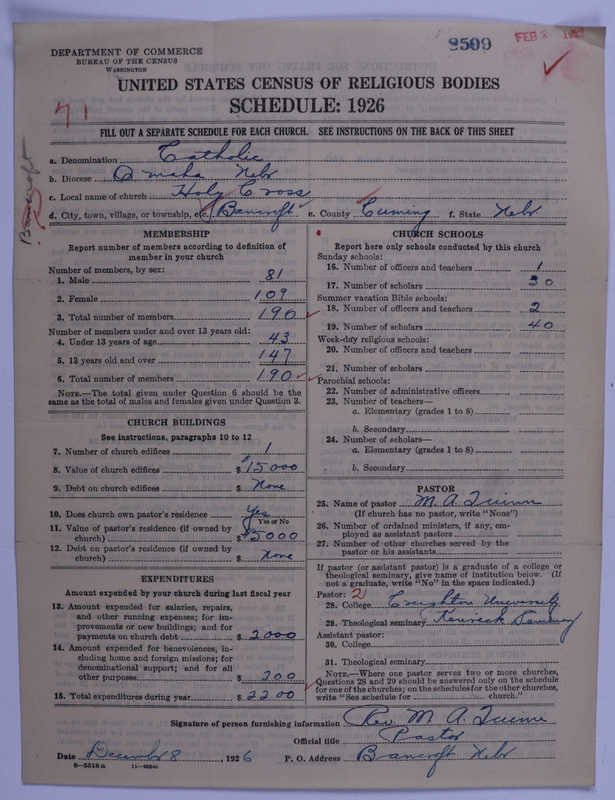 DEPARTMENT OF COMMERCE
BUREAU OF THE CENSUS
WASHINGTON
8509
FEB 2
UNITED STATES CENSUS OF RELIGIOUS BODIES
SCHEDULE: 1926
71
FILL OUT A SEPARATE SCHEDULE FOR EACH CHURCH. SEE INSTRUCTIONS ON THE BACK OF THIS SHEET
a. Denomination Catholic
b. Diocese Omaha Nebr
c. Local name of church Holy Cross
d. City, town, village, or township, etc. Bancroft e. County Cuming f. State Nebr
Bancroft
MEMBERSHIP
Report number of members according to definition of
member in your church
Number of members, by sex:
1. Male 81
2. Female 109
3. Total number of members 190
Number of members under and over 13 years old:
4. Under 13 years of age 43
5. 13 years old and over 147
6. Total number of members 190
NOTE.—The total given under Question 6 should be
same as the total of males and females given under Question 3.
CHURCH BUILDINGS
See instructions, paragraphs 10 to 12
7. Number of church edifices 1
8. Value of church edifices $ $15000
9. Debt on church edifices $ None
10. Does church own pastor's residence Yes
Yes or No
11. Value of pastor's residence (if owned by
church) $ $5000
12. Debt on pastor's residence (if owned by
church) $ None
EXPENDITURES
Amount expended by your church during last fiscal year
13. Amount expended for salaries, repairs,
and other running expenses; for im-
provements or new buildings; and for
payments on church debt $ 2000
14. Amount expended for benevolences, in-
cluding home and foreign missions; for
denominational support; and for all
other purposes $ 200
15. Total expenditures during year $ 2200
CHURCH SCHOOLS
Report here only schools conducted by this church
Sunday schools:
16. Number of officers and teachers 1
17. Number of scholars 30
Summer vacation Bible schools:
18. Number of officers and teachers 2
19. Number of scholars 40
Week-day religious schools:
20. Number of officers and teachers
21. Number of scholars
Parochial schools:
22. Number of administrative officers
23. Number of teachers—
a. Elementary (grades 1 to 8)
b. Secondary
24. Number of scholars—
a. Elementary (grades 1 to 8)
b. Secondary
PASTOR
25. Name of pastor M. A. Quinn
(If church has no pastor, write "None")
26. Number of ordained ministers, if any, em-
ployed as assistant pastors
27. Number of other churches served by the
pastor or his assistants
If pastor (or assistant pastor) is a graduate of a college or
theological seminary, give name of institution below. (If
not a graduate, write "No" in the space indicated.)
Pastor: 2
28. College Creighton University
29. Theological seminary Kenrick Seminary
Assistant pastor:
30. College
31. Theological seminary
NOTE.—Where one pastor serves two or more churches,
Questions 28 and 29 should be answered only on the schedule
for one of the churches; on the schedules for the other churches,
write "See schedule for church."
Signature of person furnishing information Rev. M. A. Quinn
Official title Pastor
Date December 8, 1926 P. O. Address Bancroft Nebr
8—5518a